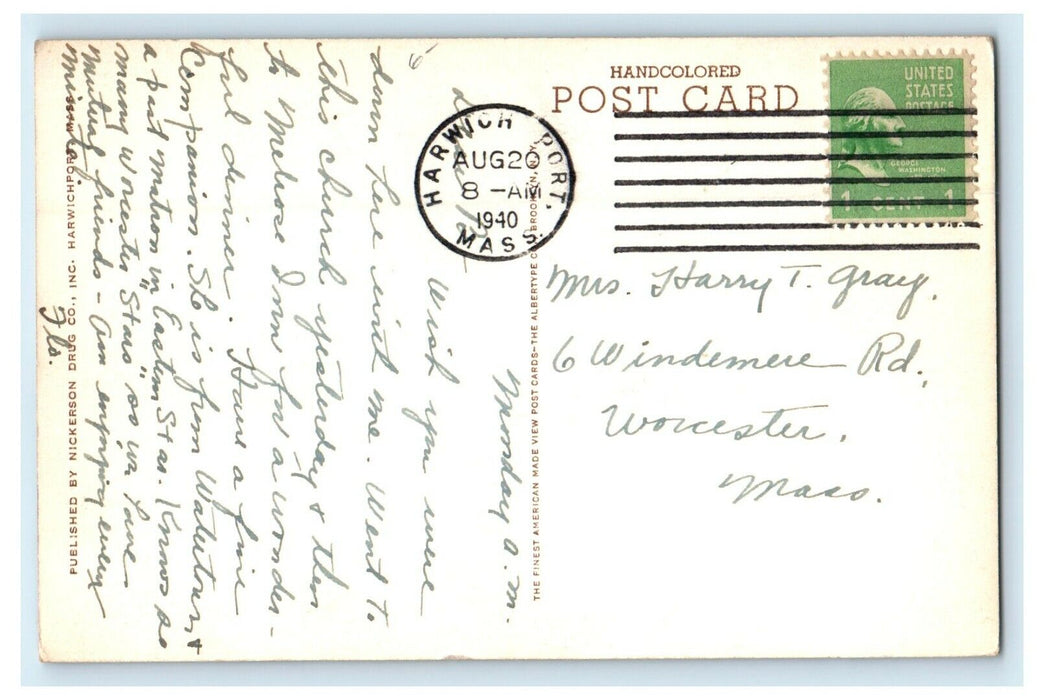 HANDCOLORED
POST CARD
UNITED
STATES
POSTAGE
GEORGE
WASHINGTON
1 CENT 1
HARWICH PORT.
AUG 20
8 - AM
1940
MASS.
Mrs. Harry T. Gray.
6 Windemere Rd.
Worcester.
Mass.
Monday a.m.
Wish you were
down here with me. Went to
this church yesterday & then
to Melrose Inn for a wonder-
ful dinner. Have a fine
Companion. She is from Watertown &
a past matron in Eastern Star. Knows so
many Worcester "Stars" so we have
mutual friends - Am enjoying every
minute.
Flo.
THE FINEST AMERICAN MADE VIEW POST CARDS-THE ALBERTYPE BROOKLYN, N.Y.
PUBLISHED BY NICKERSON DRUG CO., INC. HARWICHPORT